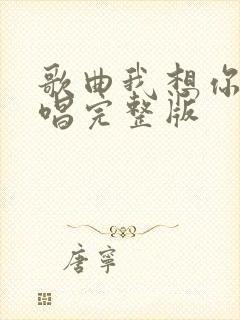 歌曲我想你
唱完整版
唐寧